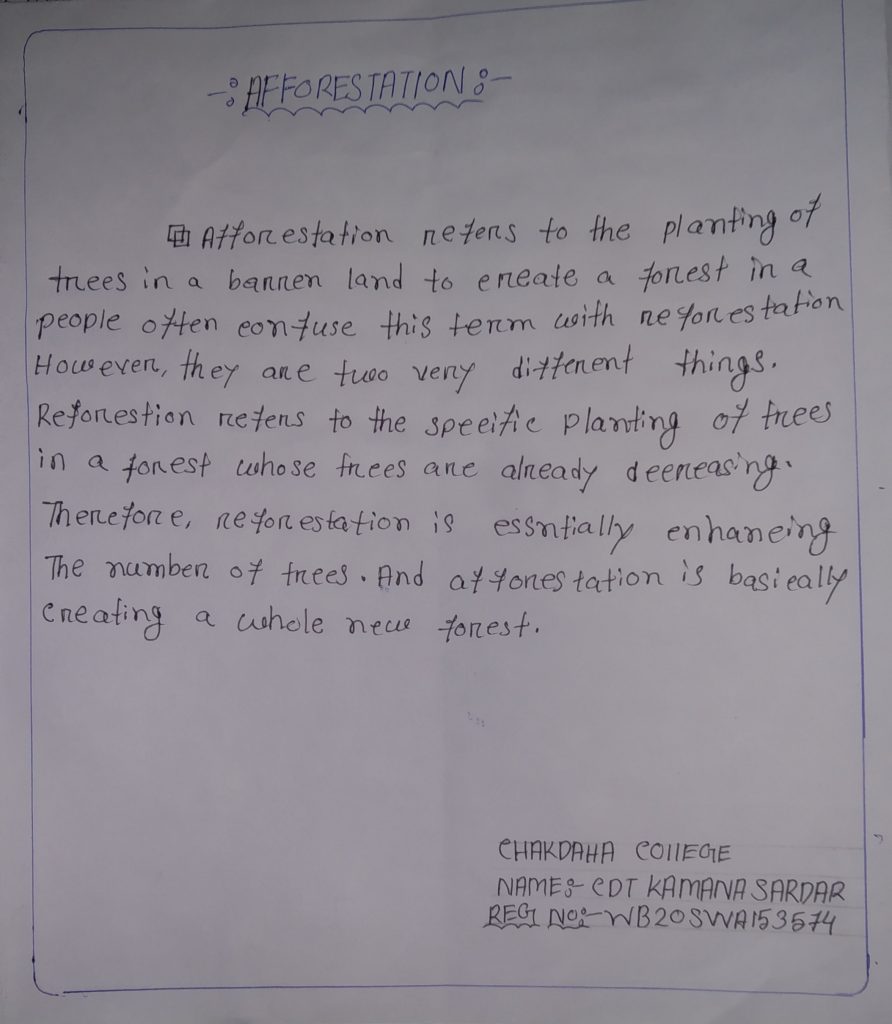 -: AFFORESTATION :-
Afforestation refers to the planting of
trees in a barren land to create a forest in a
people often confuse this term with reforestation
However, they are two very different things.
Reforestion refers to the specific planting of trees
in a forest whose trees are already decreasing.
Therefore, reforestation is essntially enhancing
The number of trees. And afforestation is basically
creating a whole new forest.
CHAKDAHA COllEGE
NAME:- CDT KAMANA SARDAR
REG NO:- WB20SWA153574